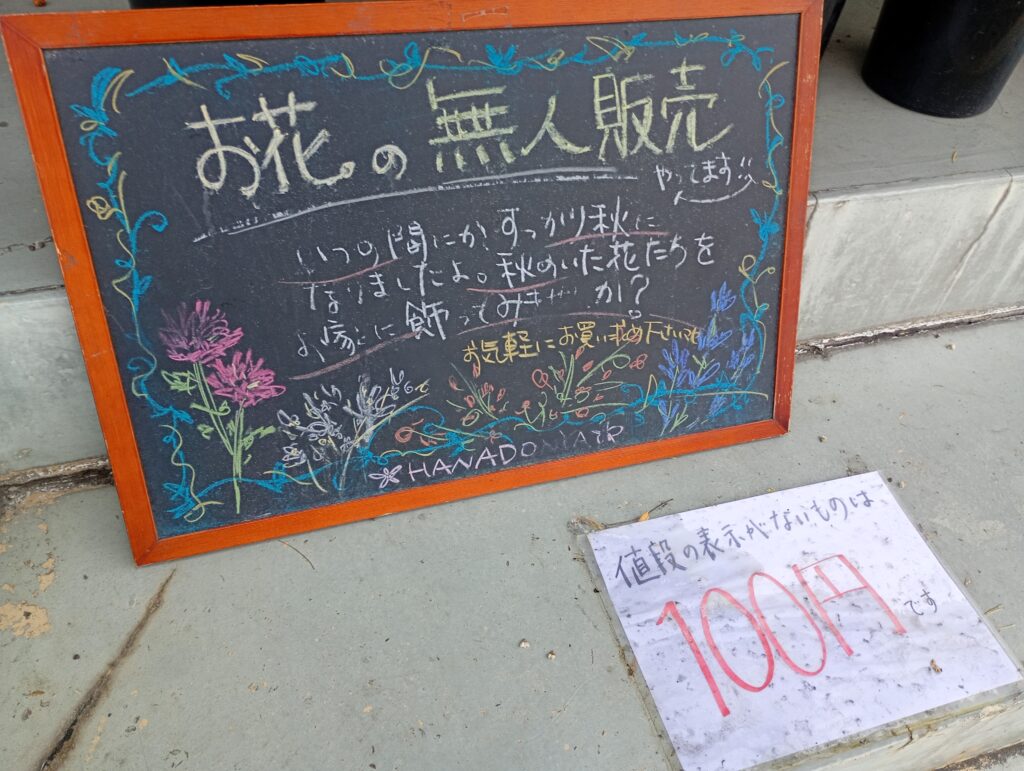 お花の無人販売
やってます
いつの間にか、すっかり秋に
なりましたよ。秋めいた花たちを
お家に飾ってみませんか?
お気軽にお買い求め下さいませ
HANADONYA
値段の表示がないものは
100円
です